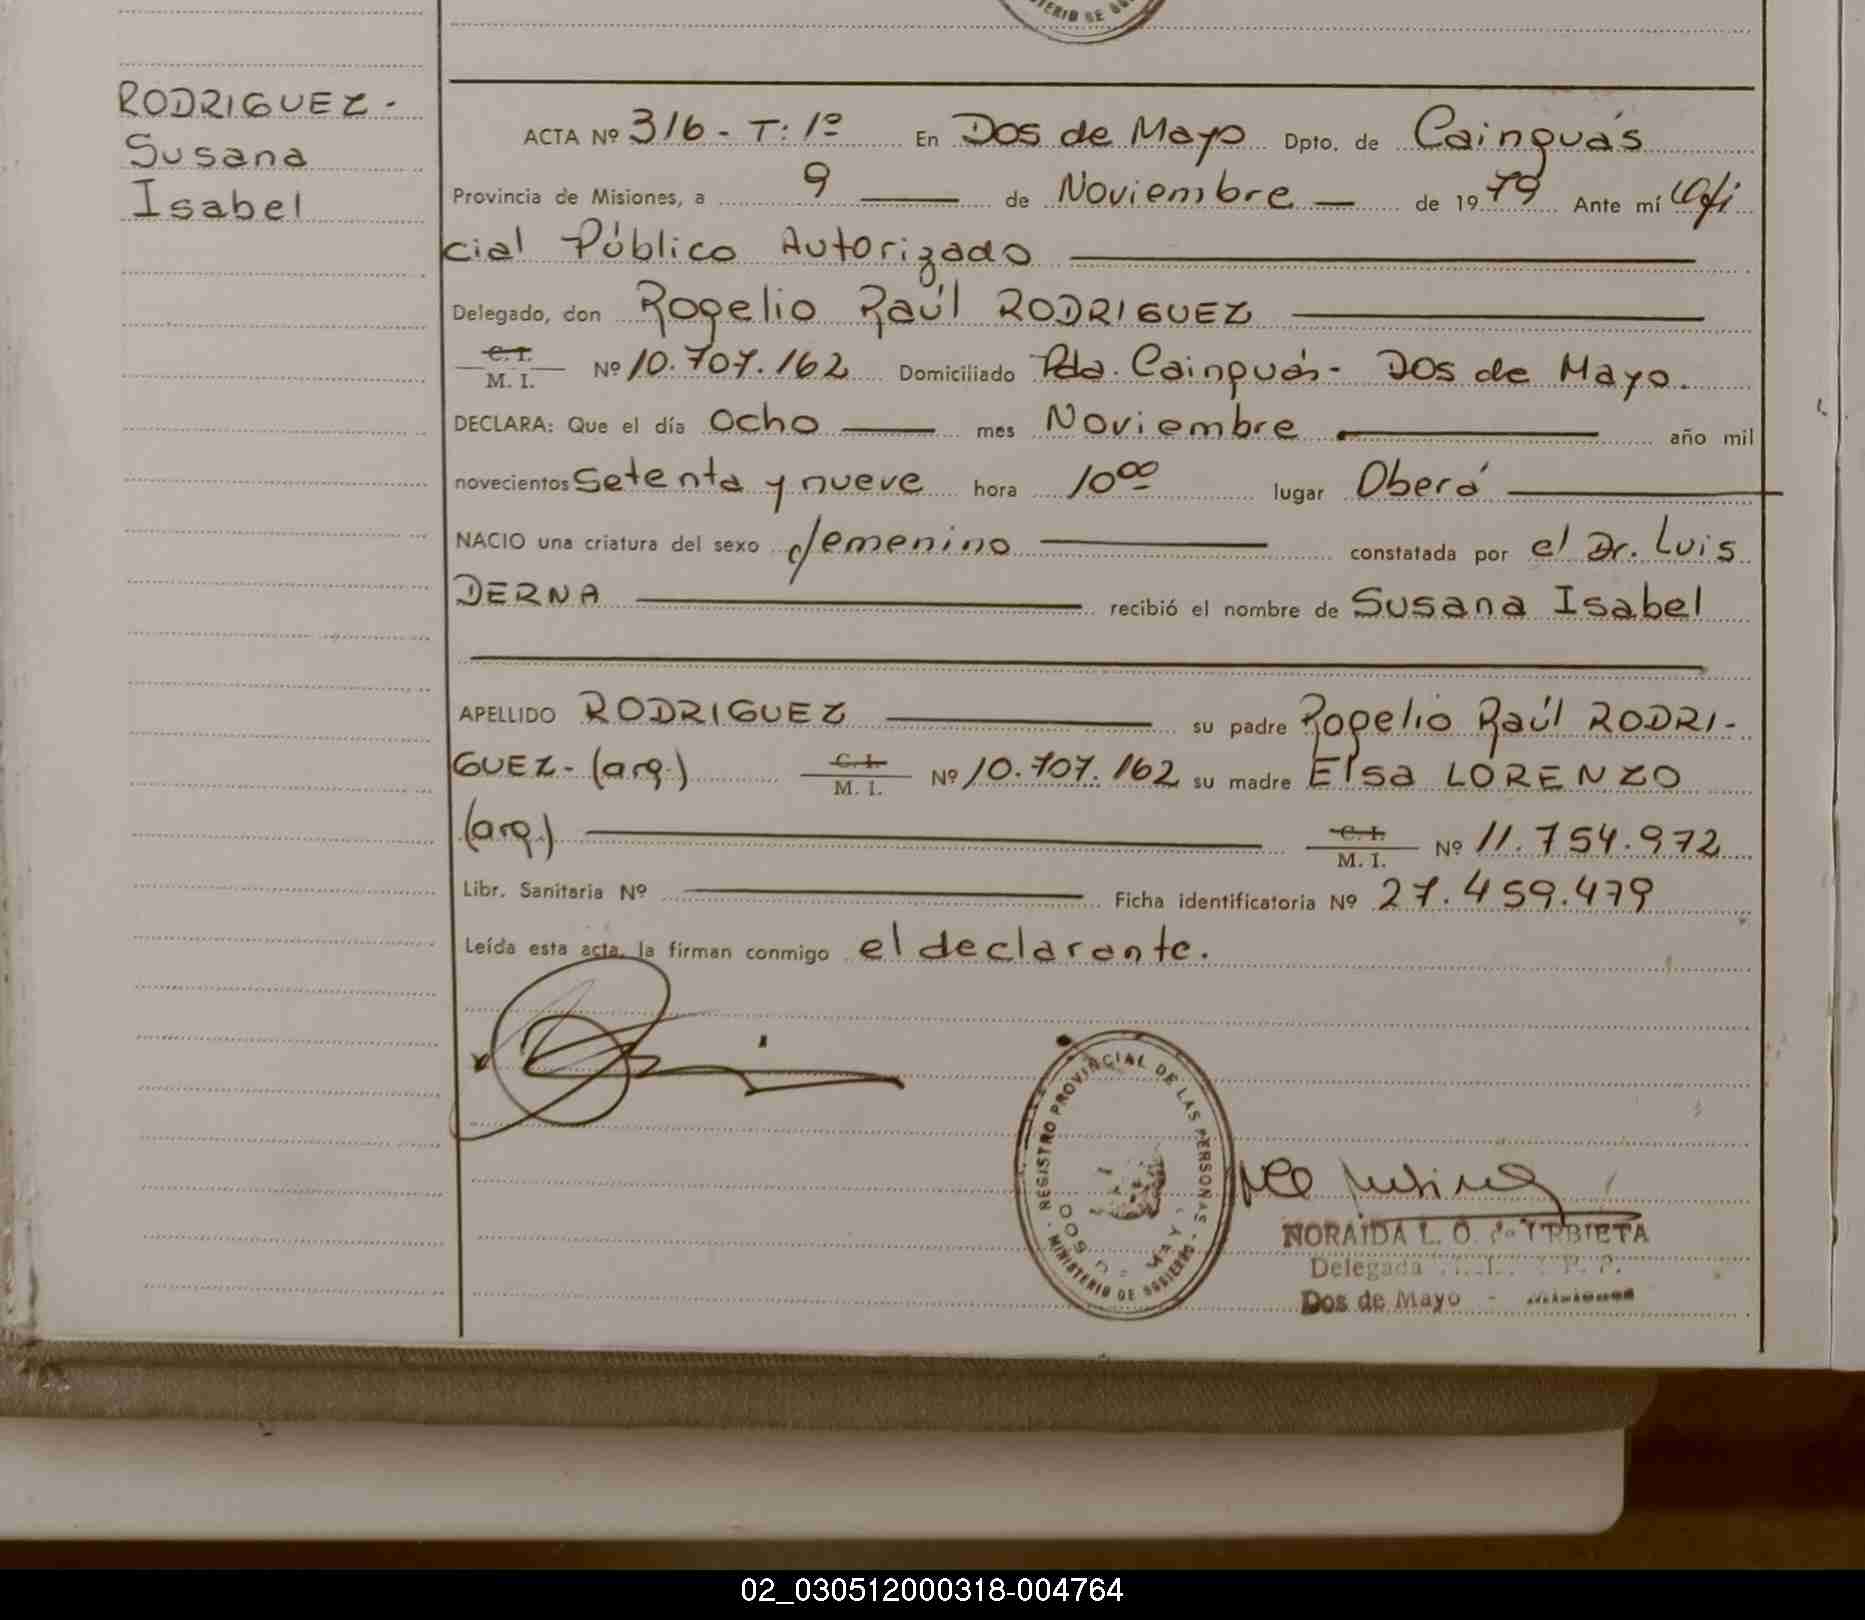 MINISTERIO DE GOBIERNO
RODRIGUEZ -
Susana
Isabel
ACTA Nº 316 - T: 1º En Dos de Mayo Dpto. de Cainguás
Provincia de Misiones, a 9 de Noviembre de 1979 Ante mí Ofi
cial Público Autorizado
Delegado, don Rogelio Raúl RODRIGUEZ
C. I.
M. I. Nº 10.707.162 Domiciliado Pda. Cainguás - Dos de Mayo.
DECLARA: Que el día ocho mes Noviembre año mil
novecientos setenta y nueve hora 10⁰⁰ lugar Oberá
NACIO una criatura del sexo femenino constatada por el Dr. Luis
DERNA recibió el nombre de Susana Isabel
APELLIDO RODRIGUEZ su padre Rogelio Raúl RODRI-
GUEZ - (arg.) C. I. M. I. Nº 10.707.162 su madre Elsa LORENZO
(arg.) C. I. M. I. Nº 11.754.972
Libr. Sanitaria Nº Ficha identificatoria Nº 27.459.479
Leída esta acta, la firman conmigo el declarante.
REGISTRO PROVINCIAL DE LAS PERSONAS
MINISTERIO DE GOBIERNO
NORAIDA L. O. de URBIETA
Delegada
Dos de Mayo - Misiones
02_030512000318-004764